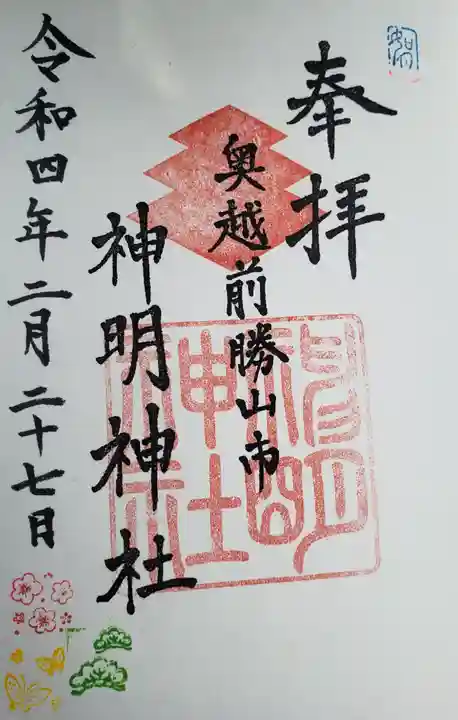 奉拝
奥越前勝山市
神明神社
神明神社
令和四年二月二十七日